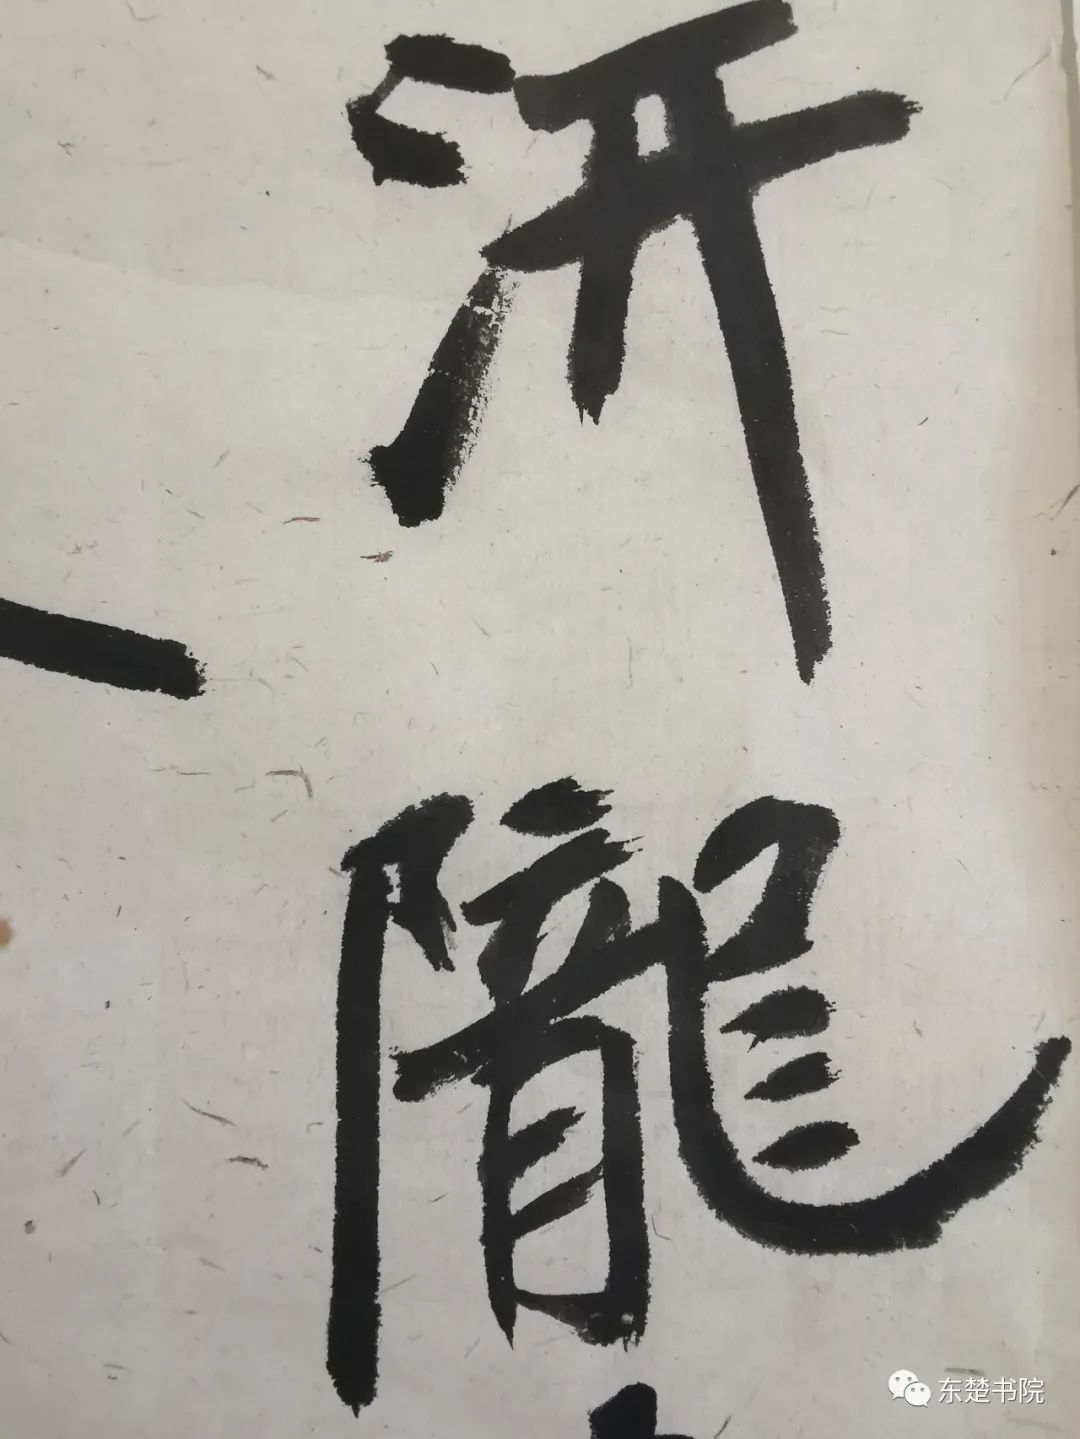 汧
隴
东楚书院